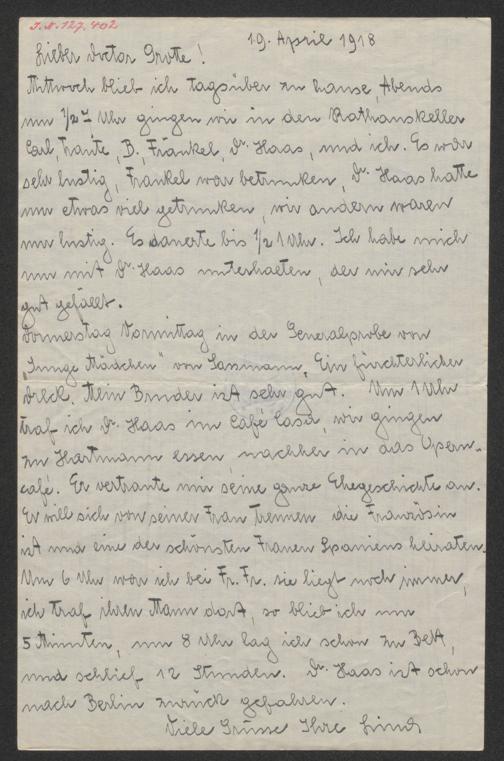 J.N. 127.402
19. April 1918
Lieber Doctor Grotte!
Mittwoch blieb ich tagsüber zu hause, Abends
um 1/2 Uhr gingen wir in den Rathauskeller
Carl, Traute, B., Fränkel, Dr. Haas, und ich. Es war
sehr lustig, Frankel war betrunken, Dr. Haas hatte
nur etwas viel getrunken, wir andern waren
nur lustig. Es dauerte bis 1/2 1 Uhr. Ich habe mich
nur mit Dr. Haas unterhalten, der mir sehr
gut gefällt.
Donnerstag Vormittag in der Generalprobe von
„Junge Mädchen" von Sassmann. Ein fürchterlicher
Dreck. Mein Bruder ist sehr gut. Um 1 Uhr
traf ich Dr. Haas im Café Casa, wir gingen
zu Hartmann essen, nachher in das Opern-
café. Er vertraute mir seine ganze Ehegeschichte an.
Er will sich von seiner Frau trennen die Französin
ist und eine der schönsten Frauen Spaniens heiraten.
Um 6 Uhr war ich bei Fr. Fr. sie liegt noch immer,
ich traf ihren Mann dort, so blieb ich nur
5 Minuten, um 8 Uhr lag ich schon zu Bett,
und schlief 12 Stunden. Dr. Haas ist schon
nach Berlin zurück gefahren.
Viele Grüsse Ihre